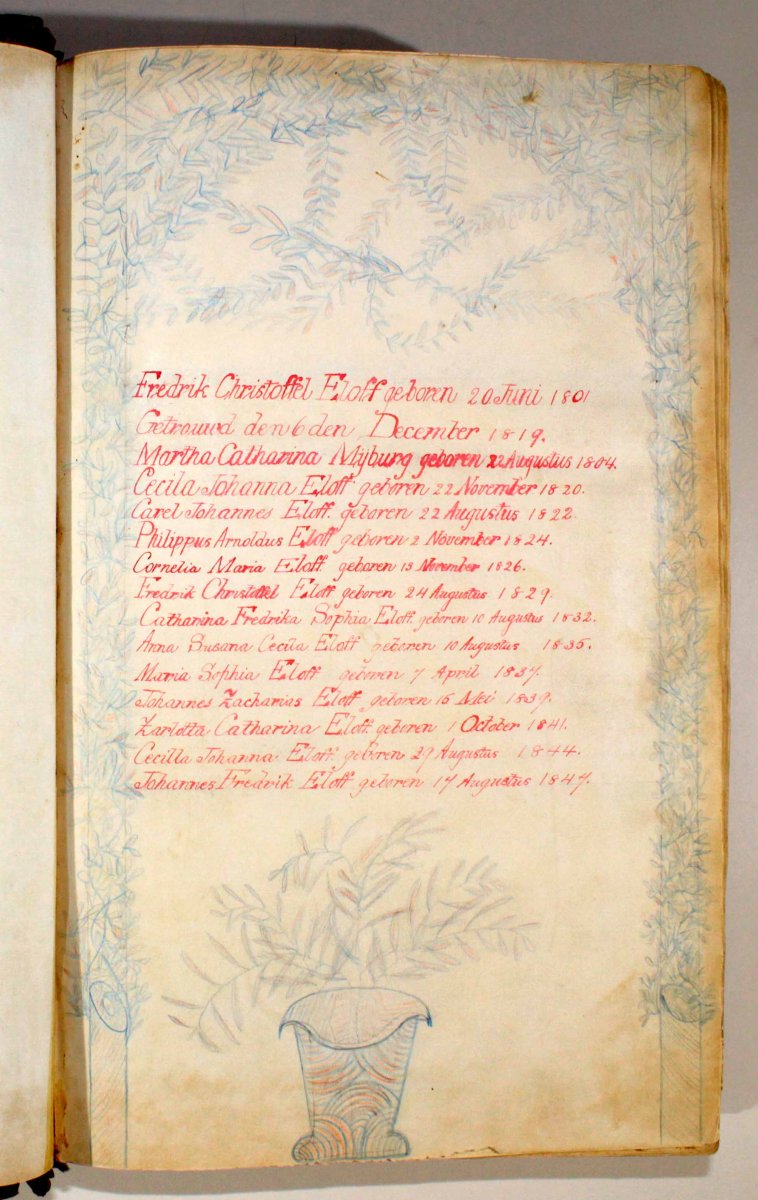 Fredrik Christoffel Eloff geboren 20 Juni 1801
Getrouwd den 6 den December 1819.
Martha Catharina Myburg geboren 22 Augustus 1804.
Cecila Johanna Eloff geboren 22 November 1820.
Carel Johannes Eloff geboren 22 Augustus 1822
Philippus Arnoldus Eloff geboren 2 November 1824.
Cornelia Maria Eloff geboren 13 November 1826.
Fredrik Christoffel Eloff geboren 24 Augustus 1829.
Catharina Fredrika Sophia Eloff. geboren 10 Augustus 1832.
Anna Susana Cecila Eloff geboren 10 Augustus 1835.
Maria Sophia Eloff geboren 7 April 1837.
Johannes Zacharias Eloff geboren 15 Mei 1839.
Zarlotta Catharina Eloff geboren 1 October 1841.
Cecilla Johanna Eloff. geboren 29 Augustus 1844.
Johannes Fredrik Eloff geboren 17 Augustus 1847.